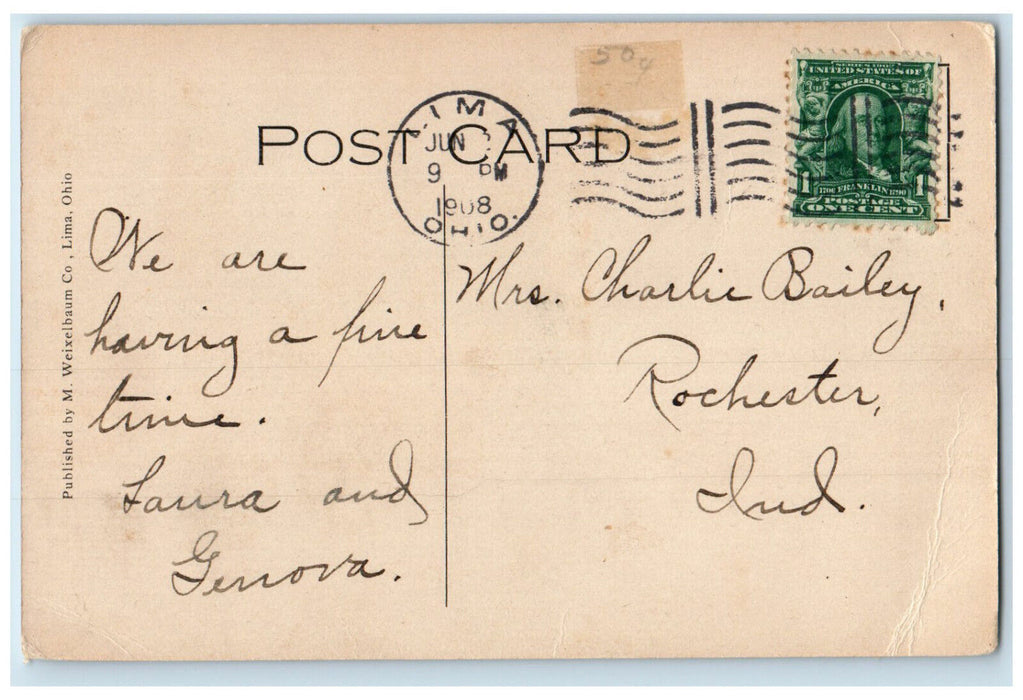 50¢
POST CARD
LIMA
JUN
9 PM
1908
OHIO.
SERIES 1902
UNITED STATES OF
AMERICA
1 1706 FRANKLIN 1790 1
POSTAGE
ONE CENT
Published by M. Weixelbaum Co., Lima, Ohio
We are
having a fine
time.
Laura and
Genova.
Mrs. Charlie Bailey,
Rochester,
Ind.